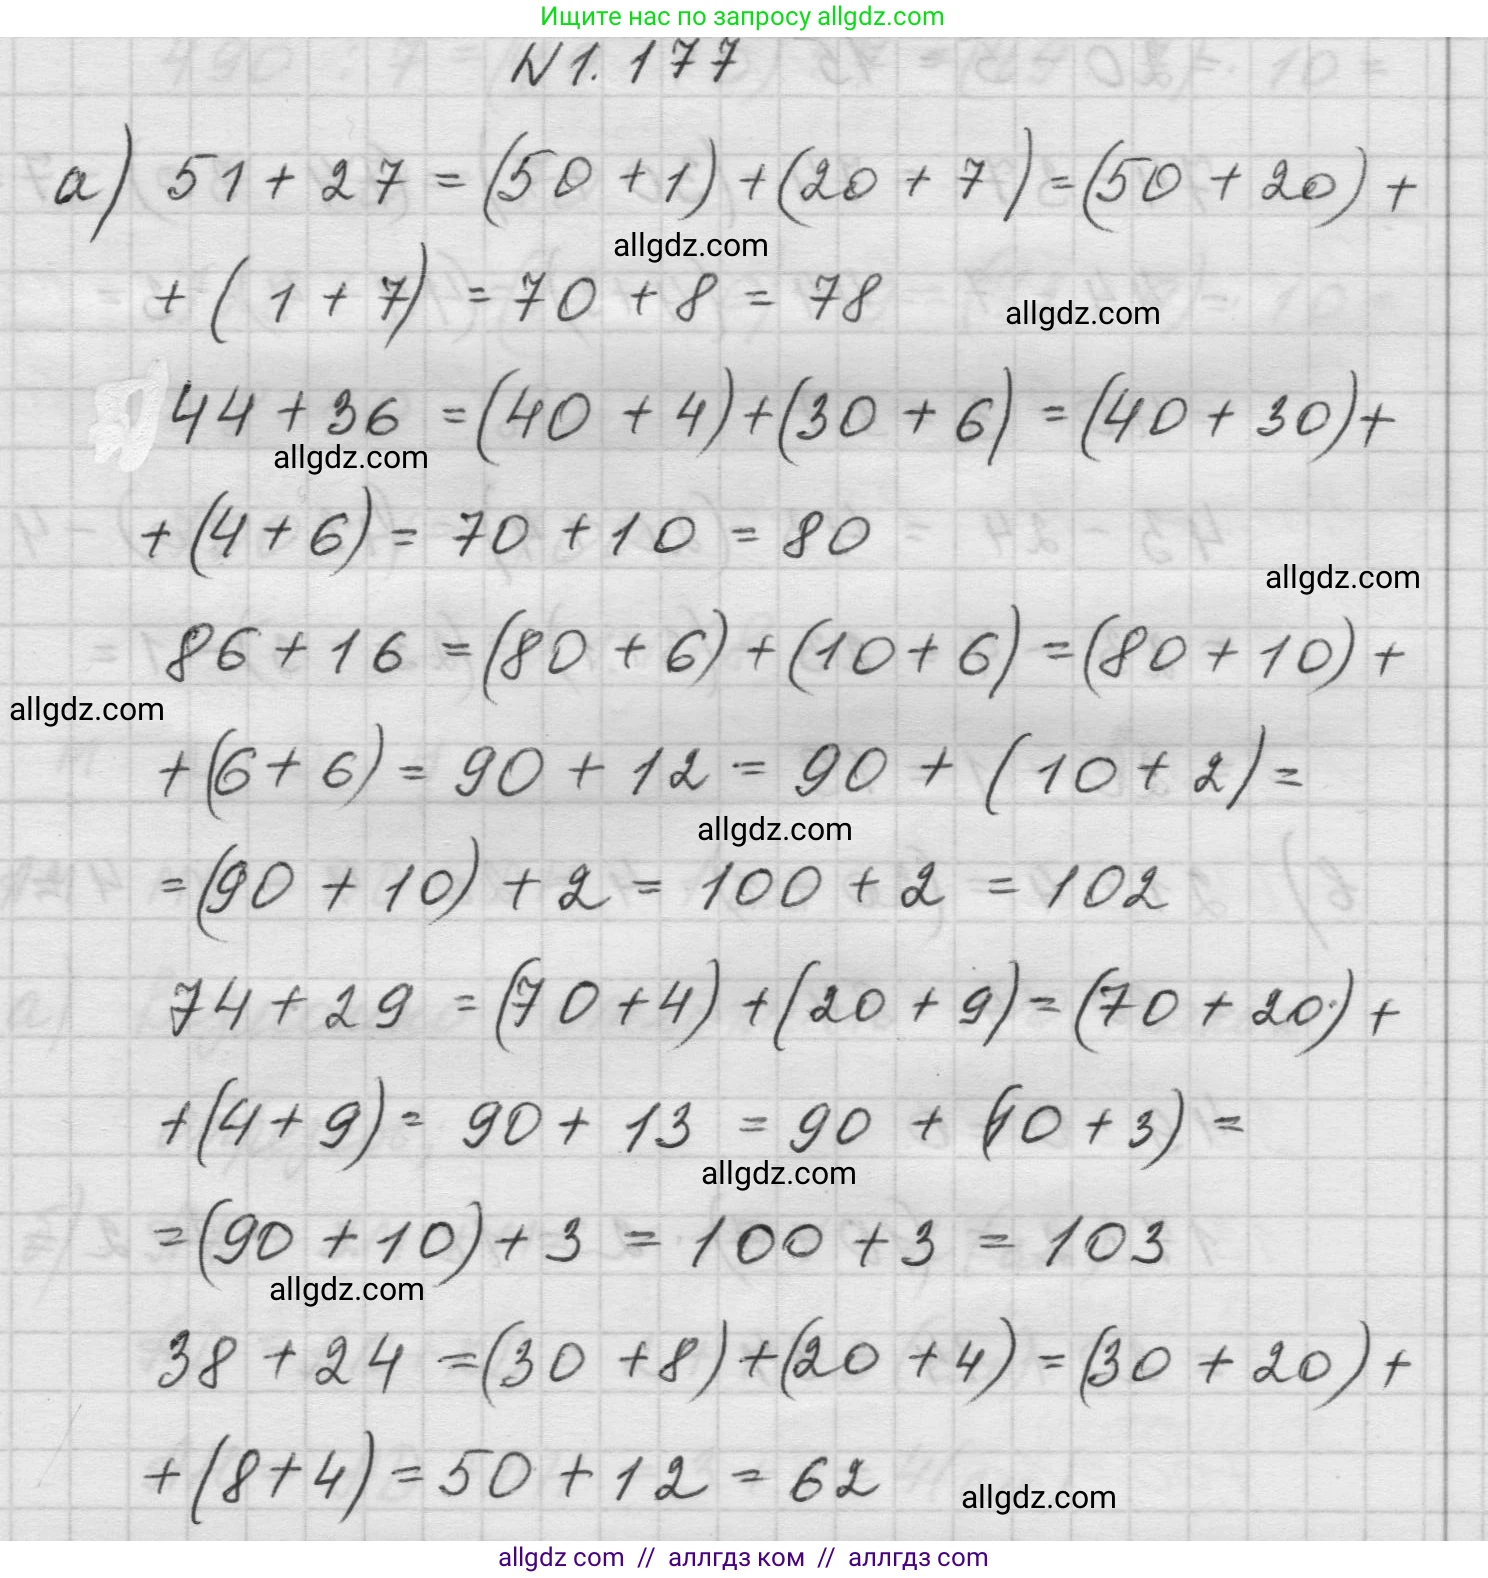 Ищите нас по запросу allgdz.com
N 1. 177
а) 51 + 27 = (50 + 1) + (20 + 7) = (50 + 20) +
allgdz.com
+ (1 + 7) = 70 + 8 = 78
allgdz.com
44 + 36 = (40 + 4) + (30 + 6) = (40 + 30) +
allgdz.com
+ (4 + 6) = 70 + 10 = 80
allgdz.com
86 + 16 = (80 + 6) + (10 + 6) = (80 + 10) +
allgdz.com
+ (6 + 6) = 90 + 12 = 90 + (10 + 2) =
allgdz.com
= (90 + 10) + 2 = 100 + 2 = 102
74 + 29 = (70 + 4) + (20 + 9) = (70 + 20) +
+ (4 + 9) = 90 + 13 = 90 + (10 + 3) =
allgdz.com
= (90 + 10) + 3 = 100 + 3 = 103
allgdz.com
38 + 24 = (30 + 8) + (20 + 4) = (30 + 20) +
+ (8 + 4) = 50 + 12 = 62
allgdz.com
allgdz com // аллгдз ком // аллгтдз com